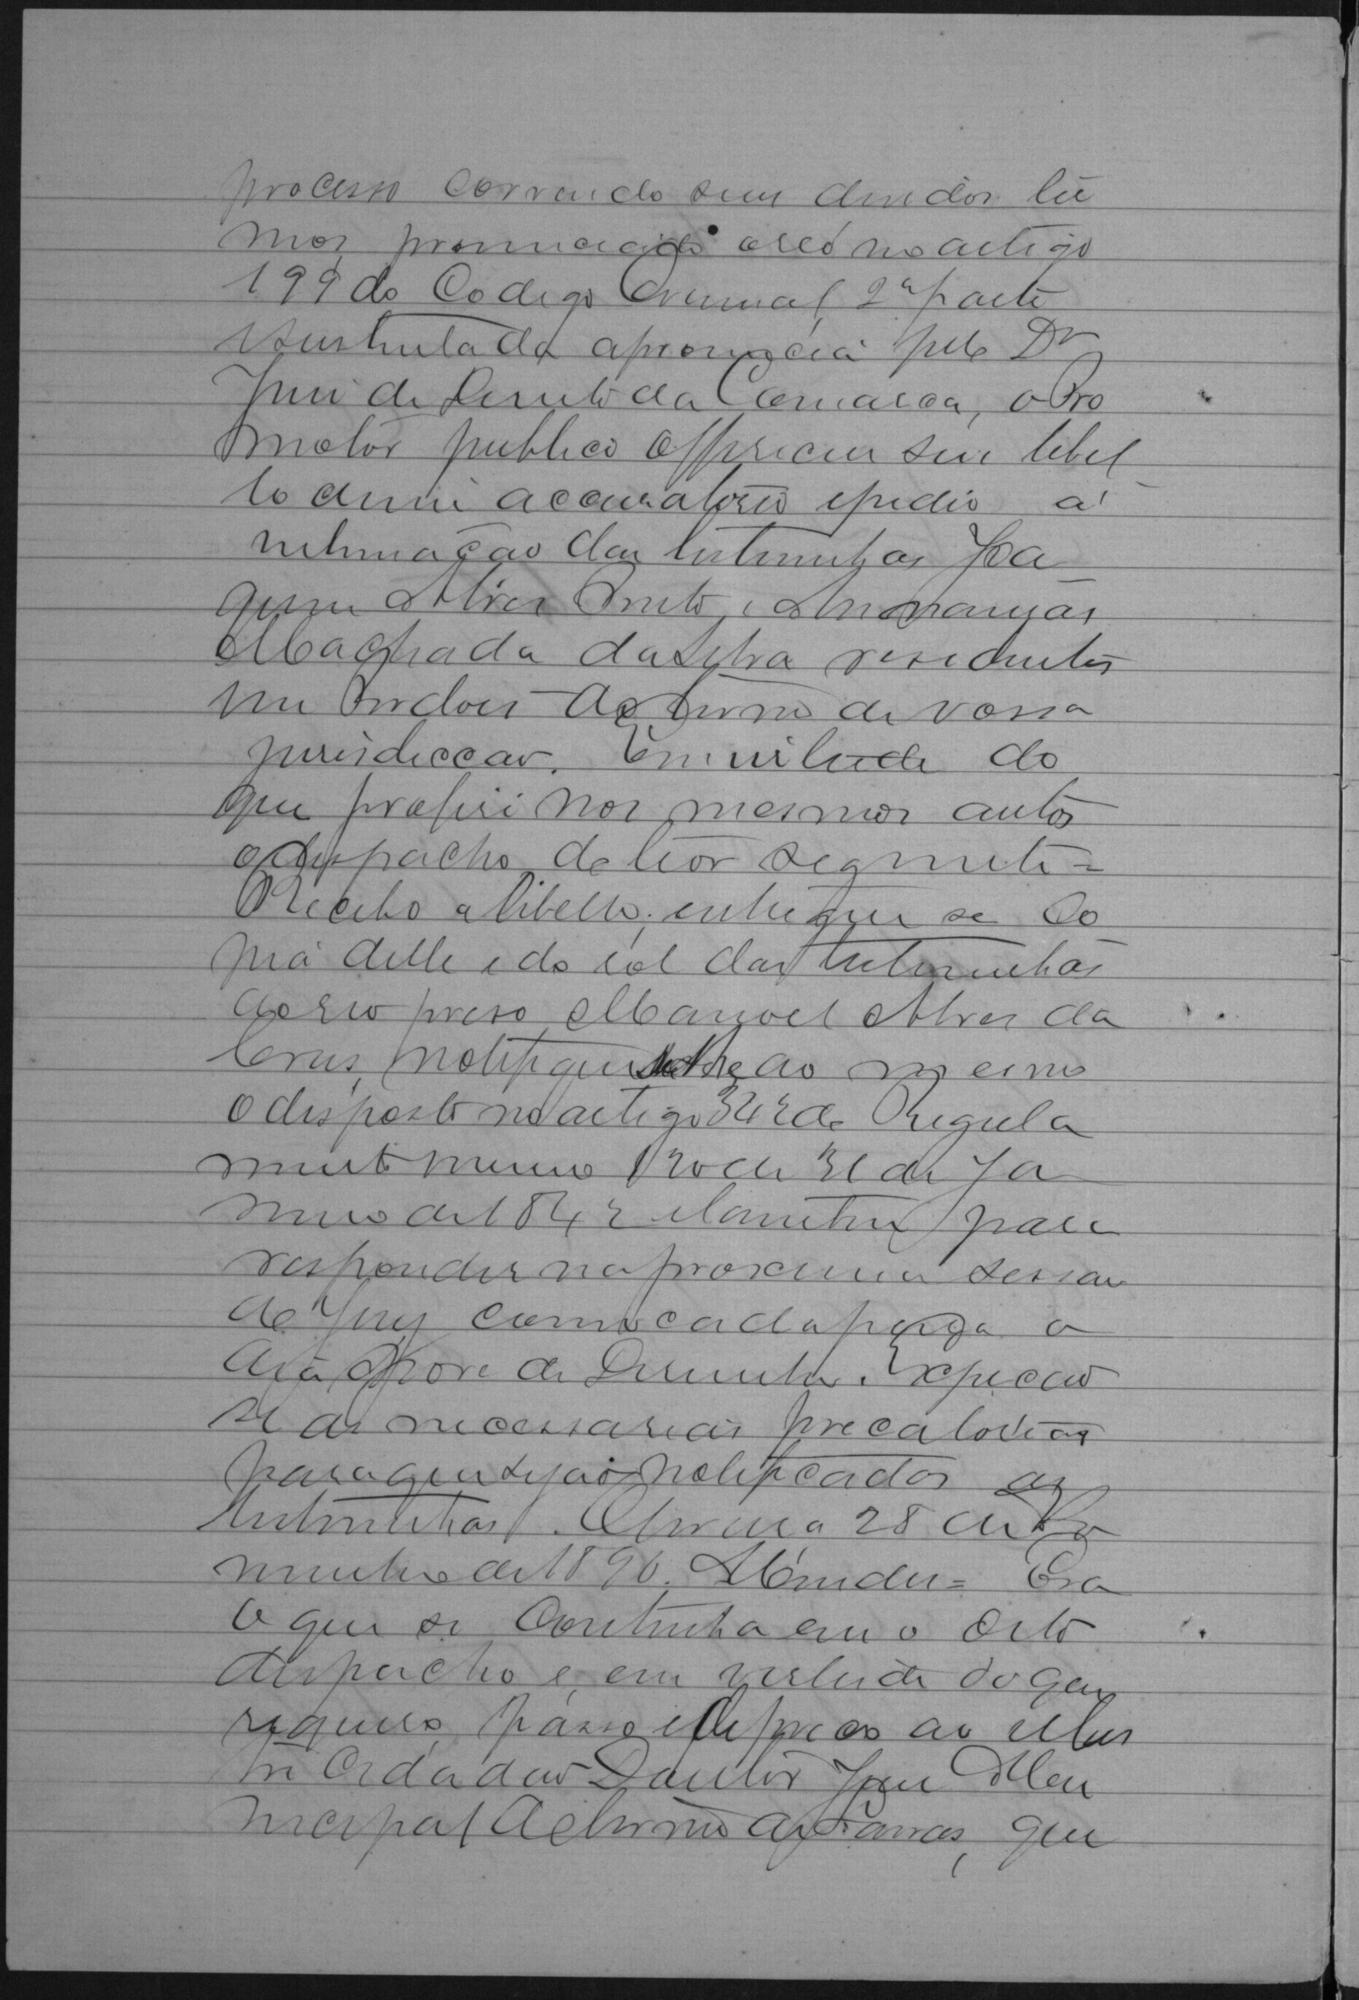 processo correndo seus devidos ter
mos, pronunciado o réo no artigo
199 do Codigo Criminal, 2ª parte
sustentada a pronuncia pelo Dr
Juiz de Direito da Comarca, o Pro
motor publico offereceu seu libel
lo crime accusatorio e pedio a
intimação das testemunhas Joa
quim Alves Preto, e
Machado da Silva residentes
em do termo de vossa
jurisdiccao. Em virtude do
que proferi nos mesmos autos
o despacho do teor seguinte =
Recebo o libello; entregue se co
pia delle e do rol das testemunhas
ao réo preso Manoel Alves da
Cruz, notifique se ao mesmo
o disposto no artigo 342 do Regula
mento numero 120 de 31 de Ja
neiro de 1842 e tambem para
responder na proxima sessao
do Jury convocada para o
dia de Dezembro. Expeção
se as necessarias precatorias
para que sejão notificados as
testemunhas. 28 de No
vembro de 1890. Almeida = Era
o que se continha em o dito
despacho e em virtude do que
requeiro, passo e depreco ao Illus
tre Cidadão Doutor Juiz Mu
nicipal do termo de, que